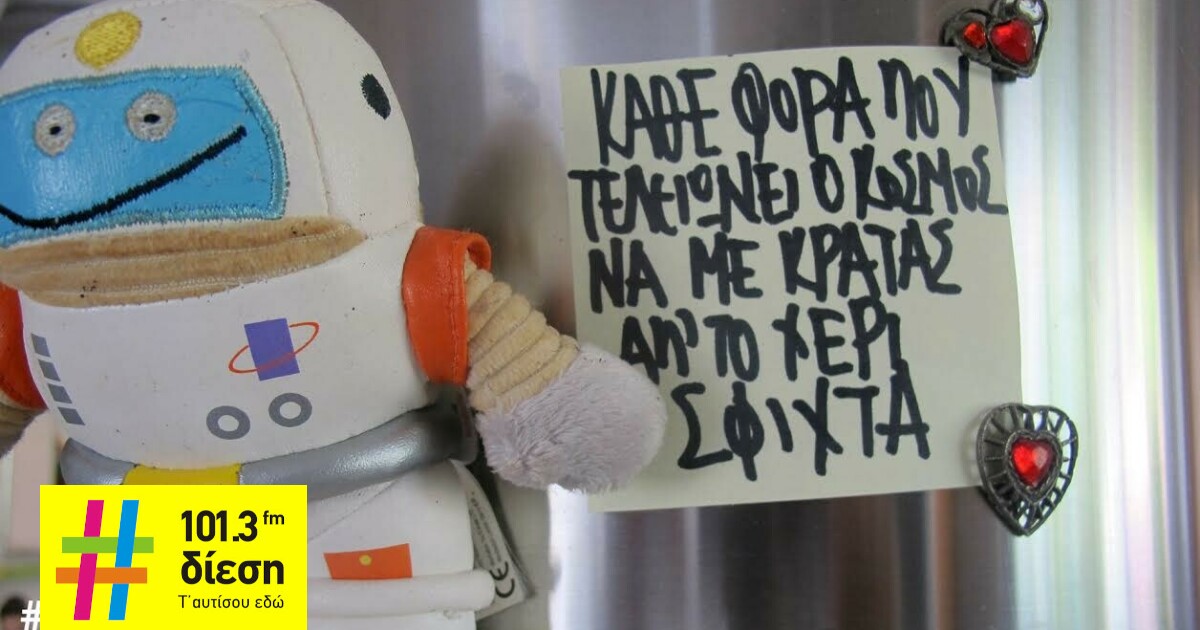 ΚΑΘΕ ΦΟΡΑ ΠΟΥ
ΤΕΛΕΙΩΝΕΙ Ο ΚΟΣΜΟΣ
ΝΑ ΜΕ ΚΡΑΤΑΣ
ΑΠ' ΤΟ ΧΕΡΙ
ΣΦΙΧΤΑ
CE
# 101.3 fm
δίεση
Τ'αυτίσου εδώ
#